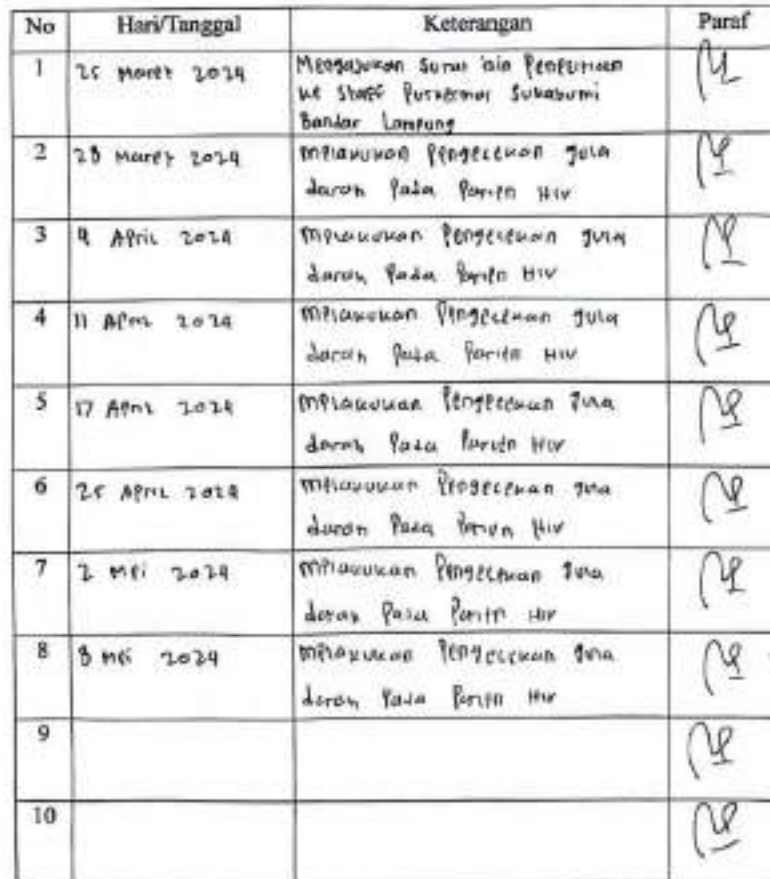 No Hari/Tanggal Keterangan Paraf
1 25 Maret 2024 Mengajukan Surat izin Penelitian
ke Staff Puskesmas Sukabumi
Bandar Lampung
2 28 Maret 2024 melakukan Pengecekan gula
darah Pada Pasien HIV
3 4 April 2024 melakukan Pengecekan gula
darah Pada Pasien HIV
4 11 April 2024 melakukan Pengecekan gula
darah Pada Pasien HIV
5 17 April 2024 melakukan Pengecekan gula
darah Pada Pasien HIV
6 25 April 2024 melakukan Pengecekan gula
darah Pada Pasien HIV
7 2 Mei 2024 melakukan Pengecekan gula
darah Pada Pasien HIV
8 8 Mei 2024 melakukan Pengecekan gula
darah Pada Pasien HIV
9
10